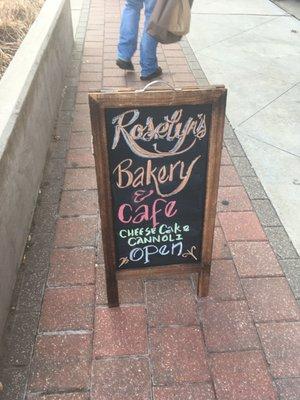 Roselyn's
Bakery
&
Cafe
CHEESE CAKE
CANNOLI
Open